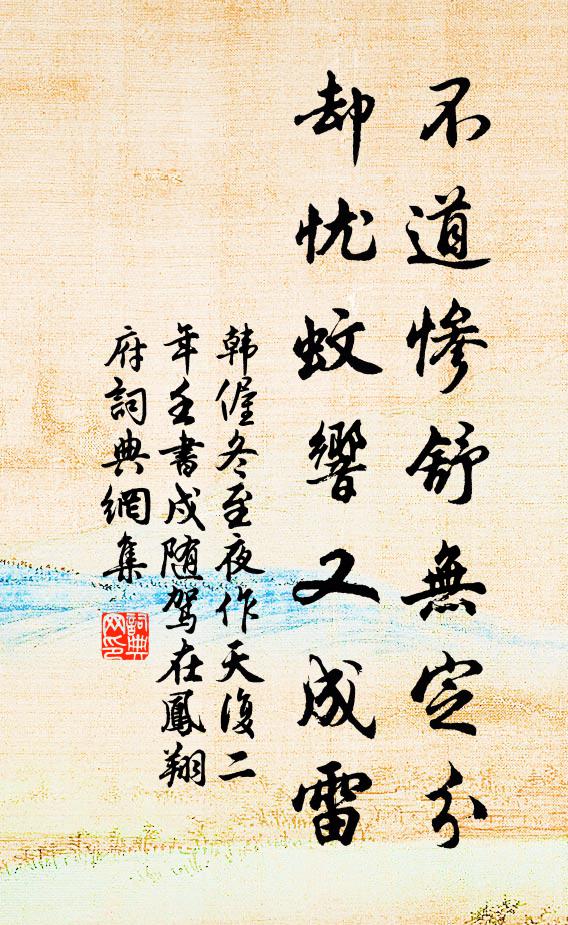 不道慘舒無定分
却忧蚊響又成雷
韩偓冬至夜作天復二
年壬書戌随驾在鳳翔
府詞典網集
詞典
网印